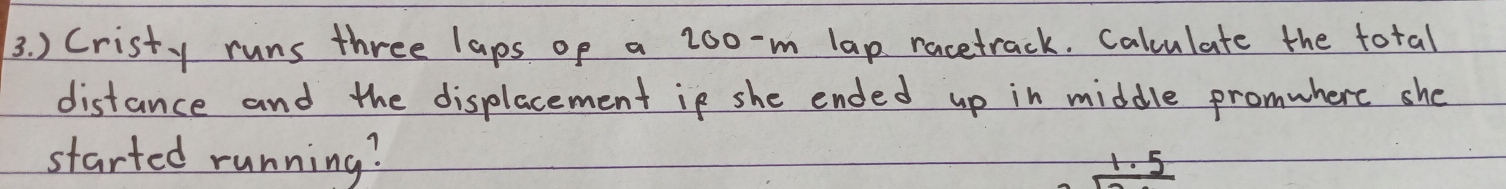 3.) Cristy runs three laps of a 200-m lap racetrack. Calculate the total
distance and the displacement if she ended up in middle fromwhere she
started running?
1.5